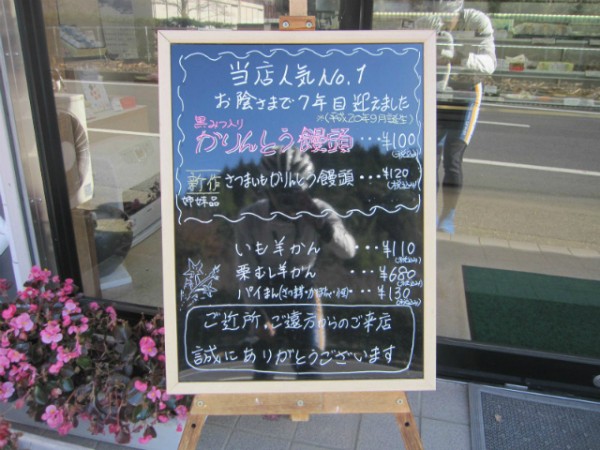 当店人気No.1
お陰さまで7年目迎えました
※(平成20年9月誕生)
黒みつ入り
かりんとう饅頭・・・¥100
(税込み)
新作 さつまいもかりんとう饅頭・・・¥120
(税込み)
姉妹品
いも羊かん ・・・¥110
(税込み)
栗むし羊かん ・・・¥680
(税込み)
パイまん ・・・¥130
(税込み)
ご近所、ご遠方からのご来店
誠にありがとうございます